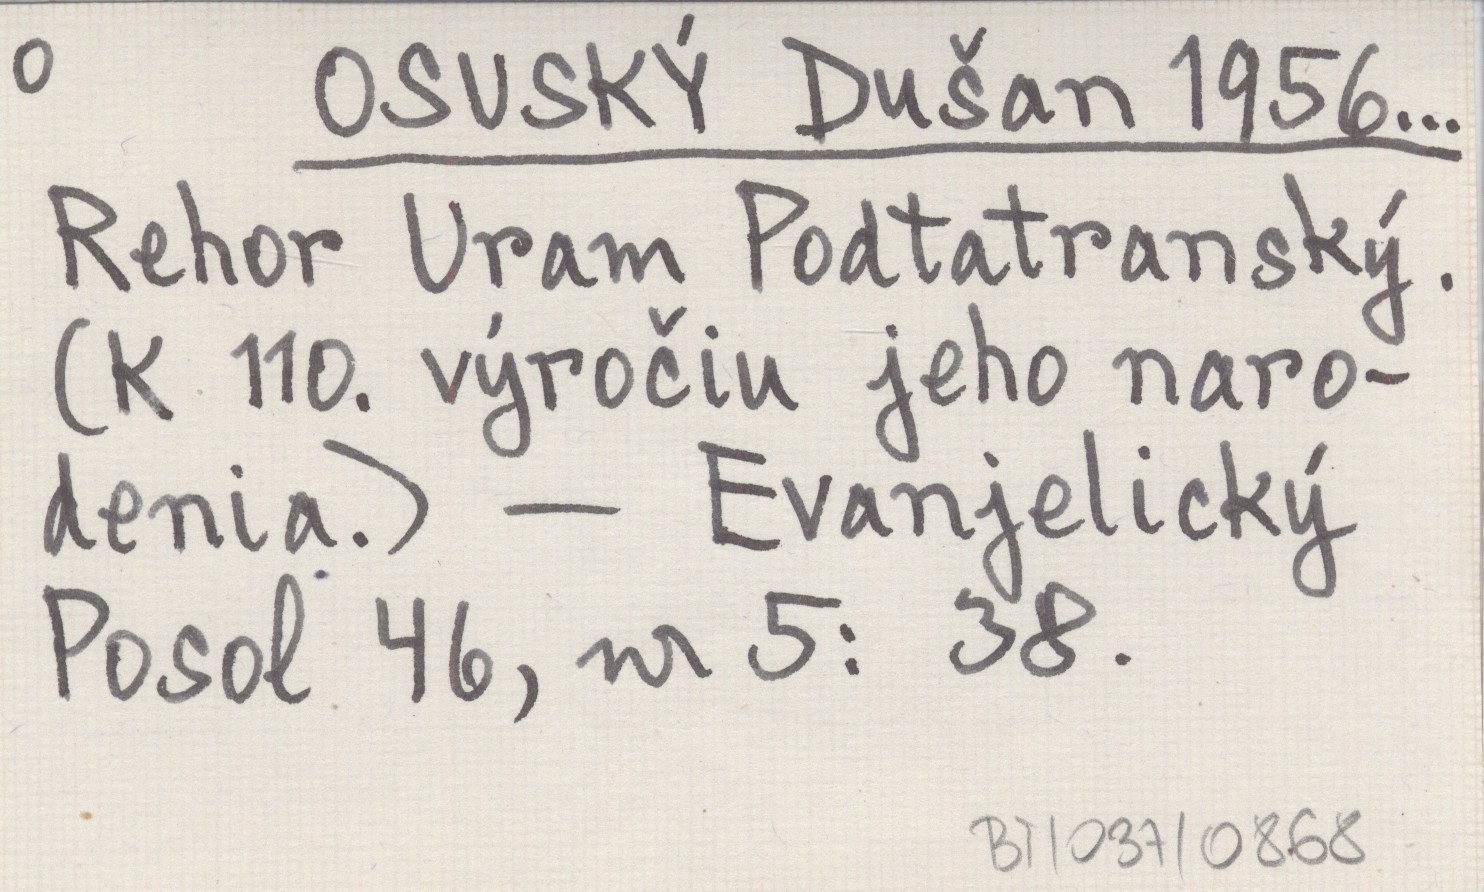 O OSUSKÝ Dušan 1956...
Rehor Uram Podtatranský.
(K 110. výročiu jeho naro-
denia.) — Evanjelický
Posol 46, nr 5: 38.
BT/037/0868